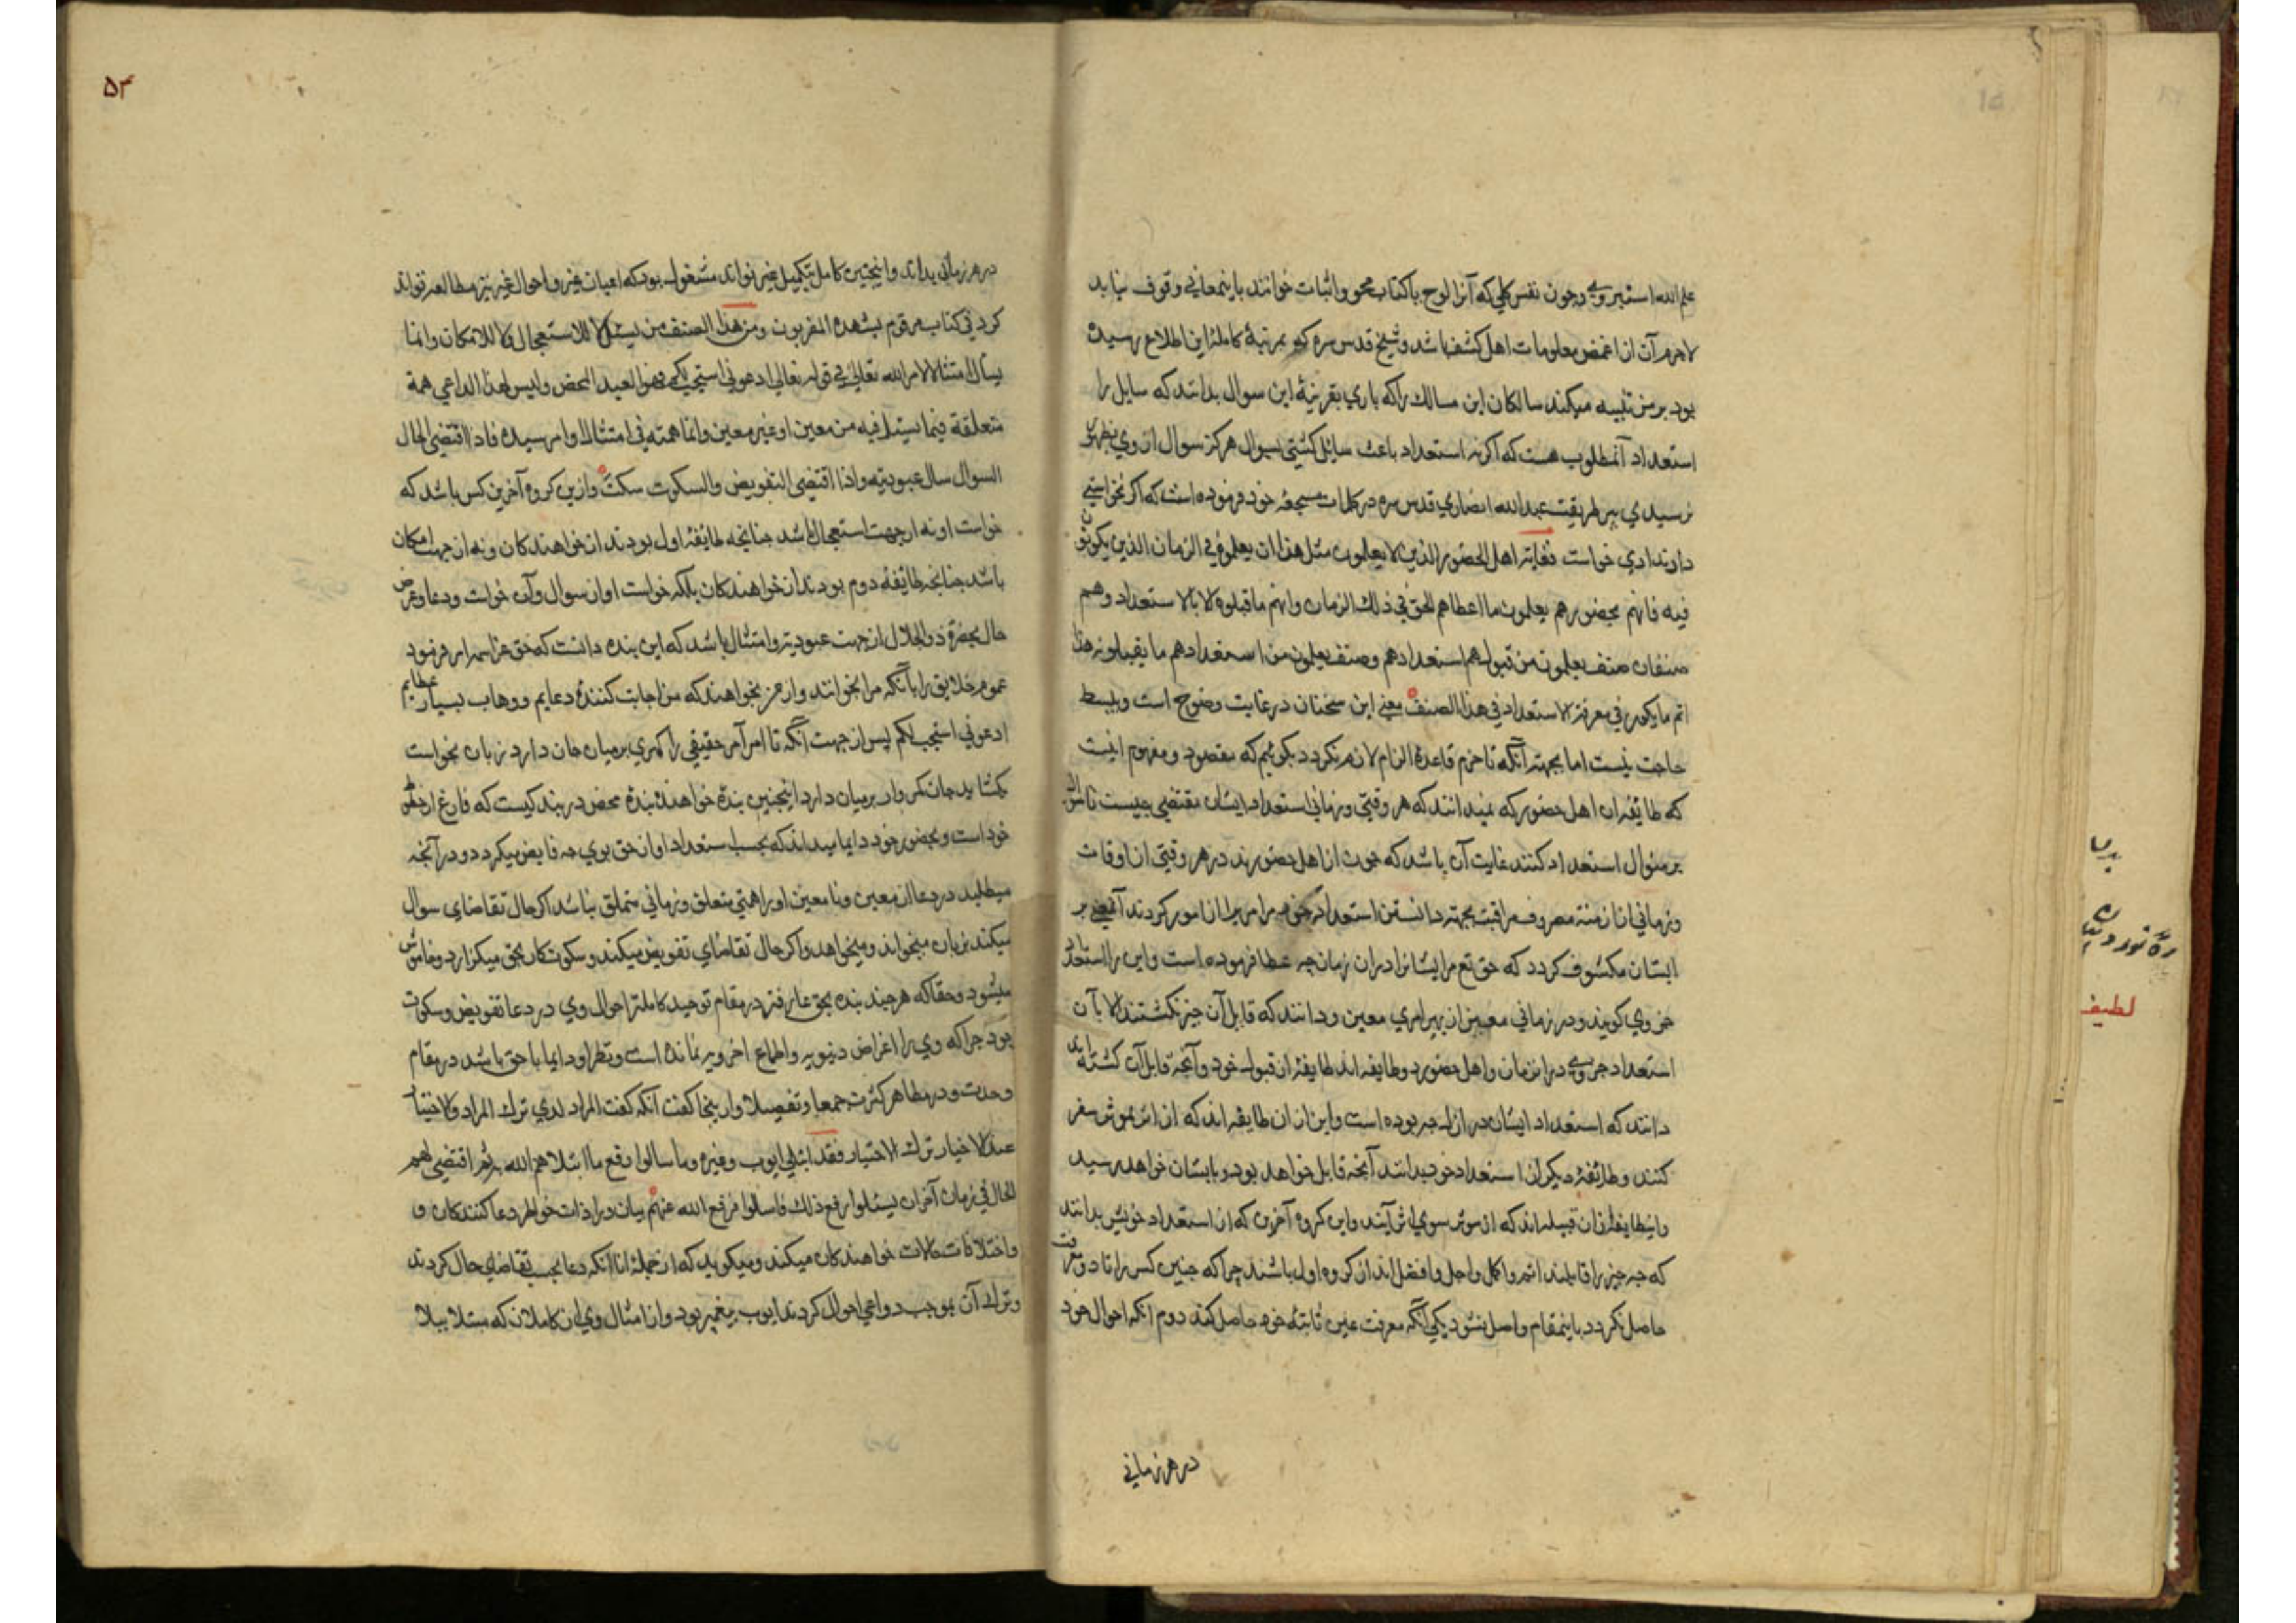 علم الله است بروی و چون نفس کلی که آنرا لوح یا کتاب محو و اثبات خوانند باینمعانی وقوف نیابد
لاجرم آن از اغمض معلومات اهل کشف باشد و شیخ قدس سره که بمرتبهٔ کاملهٔ این اطلاع رسیده
بود برمن تنبیه میکند سالکان این مسالک را که باری بقرینهٔ این سوال بدانند که سایل را
استعداد آنمطلوب هست که اگر نه استعداد باعث سایل گشتی بسوال هرگز سوال از وی بظهور
نرسیدی پیر طریقت عبدالله انصاری قدس سره در کلمات مسجعهٔ خود فرموده است که اگر نخواستی
داد ندادی خواست فغایة اهل الحضور الذین لا یعلمون مثل هذا ان یعلموه فی الزمان الذین یکونون
فیه فانهم بحضورهم یعلمون ما اعطاهم الحق فی ذلک الزمان وانهم ما قبلوه الا بالاستعداد وهم
صنفان صنف یعلمون من قبولهم استعدادهم وصنف یعلمون من استعدادهم ما یقبلونه هذا
اتم ما یکون فی معرفة الاستعداد فی هذا الصنف معنی این سخنان در غایت وضوح است و ببسط
حاجت نیست اما بجهت آنکه تا خرم قاعدهٔ الزام لازم نکردد بکوئیم که مقصود و مفهوم اینست
که طایفه از اهل حضور که نمیدانند که هر وقتی و زمانی استعداد ایشان مقتضی چیست تا سوال
بر منوال استعداد کنند غایت آن باشد که چون از اهل حضورند در هر وقتی از اوقات
و زمانی از ازمنه مصروف مراقبت بجهت دانستن استعداد جزوی مر امری را از امور کردند آنمعنی بر
ایشان مکشوف کردد که حق تع مر ایشانرا در آن زمان چه عطا فرموده است و این را استعداد
جزوی کویند و در زمانی معین از بهر امری معین و دانند که قابل آن چیز نکشتند الا بآن
استعداد جزوی در آنزمان و اهل حضور دو طایفه اند طایفهٔ از قبول خود و آنچه قابل آن کشته اند
دانند که استعداد ایشان در ازل چه بوده است و این از ان طایفه اند که از اثر بموثر سفر
کنند و طایفهٔ دیکر از استعداد خود بدانند آنچه قابل خواهد بود و بایشان خواهد رسید
و اینطایفه از ان قبیله اند که از موثر سوی اثر آیند و این کروه آخرین که از استعداد خویش بدانند
که چه چیز را قابلند اتم و اکمل و اجل و افضل اند از کروه اول باشند چرا که چنین کس را تا دو معرفت
حاصل نکردد باینمقام واصل نشود یکی آنکه معرفت عین ثابتهٔ خود حاصل کند دوم آنکه احوال خود
در هر زمانی
۵۳
در هر زمانی بداند و اینچنین کامل بتکمیل غیر تواند مشغول بود که اعیان غیر و احوال غیر نیز مطالعه تواند
کرد فی کتاب مرقوم یشهده المقربون ومن هذا الصنف من یسئل لا للاستعجال ولا للامکان وانما
یسال امتثالا لامر الله تعالی فی قوله تعالی ادعونی استجب لکم فهو العبد المحض ولیس لهذا الداعی همة
متعلقة فیما یسئل فیه من معین او غیر معین وانما همته فی امتثال اوامر سیده فاذا اقتضی الحال
السوال سال عبودیة واذا اقتضی التفویض والسکوت سکت و ازین کروه آخرین کس باشد که
خواست او نه از جهت استعجال باشد چنانچه طایفهٔ اول بودند از خواهندکان و نه از جهت امکان
باشد چنانچه طایفهٔ دوم بودند از خواهندکان بلکه خواست او از سوال و آن خواست و دعا و عرض
حال بحضرة ذو الجلال از جهت عبودیة و امتثال باشد که این بنده دانست که حق عز اسمه امر فرمود
عموم خلایق را بآنکه مرا بخوانند و از من بخواهند که من اجابت کنندهٔ دعایم و وهاب بسیار عطایم
ادعونی استجب لکم پس از جهت آنکه تا امر آمر حقیقی را کمری بر میان جان دارد زبان بخواست
بکشاید جان کمر وار بر میان دارد اینچنین بندهٔ خواهندهٔ بندهٔ محض در بند کیست که فارغ از حظوظ
خود است و بحضور خود دایما میداند که بحسب استعداد او از حق بوی چه فایض میکردد و در آنچه
میطلبد در دعا از معین و نا معین او را همتی متعلق و زمانی متملق نباشد اکر حال تقاضای سوال
میکند بزبان میخواند و میخواهد و اکر حال تقاضای تفویض میکند و سکوت کار بحق میکزارد و خاموش
میشود و حقا که هر چند بنده بحق عارفتر در مقام توحید کاملتر احوال وی در دعا تفویض و سکوت
بود چرا که وی را اغراض دنیویه و اطماع اخرویه نمانده است و نظر او دایما با حق باشد در مقام
وحدت و در مظاهر کثرت جمعا و تفصیلا و از ینجا کفت آنکه کفت المراد لدی ترک المراد والاختیار
عند الاخیار ترک الاختیار فقد ابتلی ایوب وغیره وما سالوا رفع ما ابتلاهم الله به ثم اقتضی لهم
الحال فی زمان آخر ان یسئلوا رفع ذلک فاسالوا فرفع الله عنهم بیان در ارادات خواطر دعا کنندکان و
و اختلافات حالات خواهندکان میکند و میکوید که از جمله آنانکه دعا بحسب تقاضای حال کردند
و ترک آن بموجب دواعی احوال کردند ایوب پیغمبر بود و از امثال وی از کاملان که مبتلا ببلا
لطیف